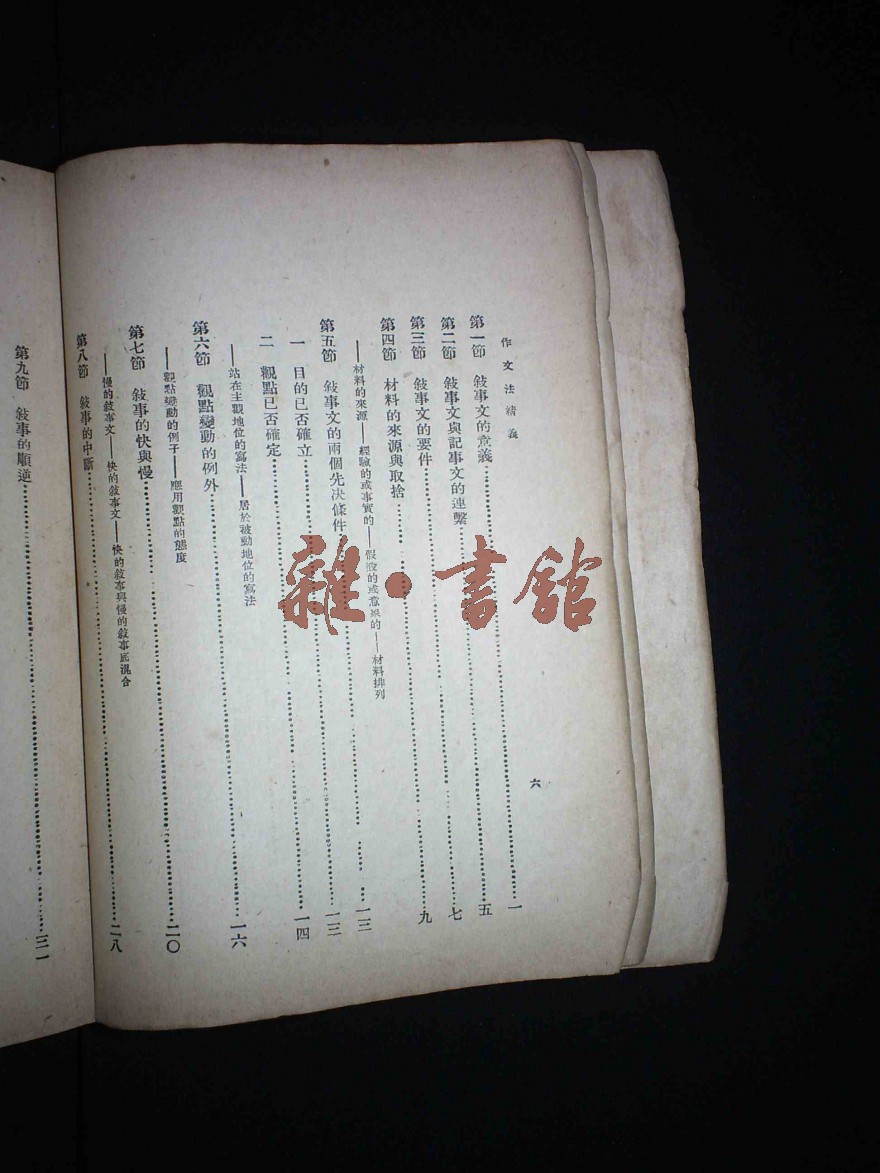 作文法精義
六
第一節 敍事文的意義……一
第二節 敍事文與記事文的連繫……五
第三節 敍事文的要件……七
第四節 材料的來源與取捨……九
——材料的來源——經驗的或事實的——假設的或意象的——材料排列
第五節 敍事文的兩個先決條件……一三
一 目的已否確立……一三
二 觀點已否確定……一四
——站在主觀地位的寫法——居於被動地位的寫法
第六節 觀點變動的例外……一六
——觀點變動的例子——應用觀點的態度
第七節 敍事的快與慢……二〇
——慢的敍事文——快的敍事文——快的敍事與慢的敍事底混合
第八節 敍事的中斷……二八
第九節 敍事的順逆……三一
雜·書館